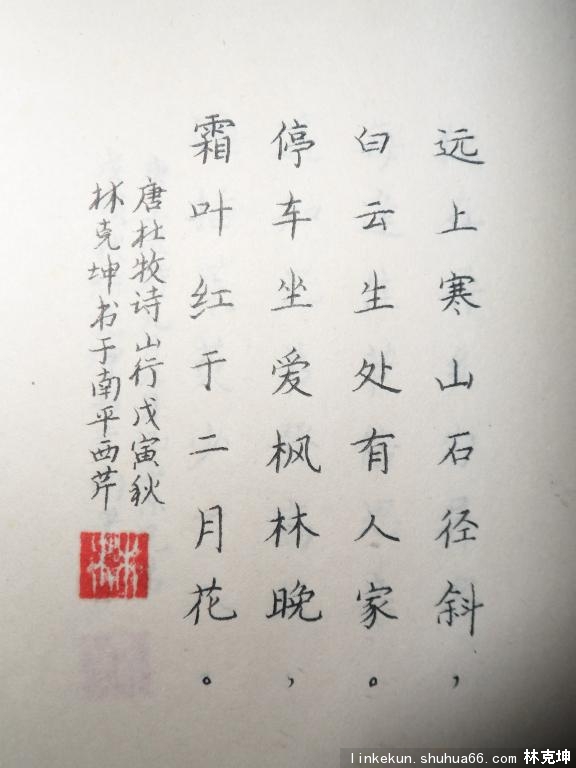 远上寒山石径斜，
白云生处有人家。
停车坐爱枫林晚，
霜叶红于二月花。
唐杜牧诗山行戊寅秋
林克坤书于南平西芹
linkekun.shuhua66.com 林克坤